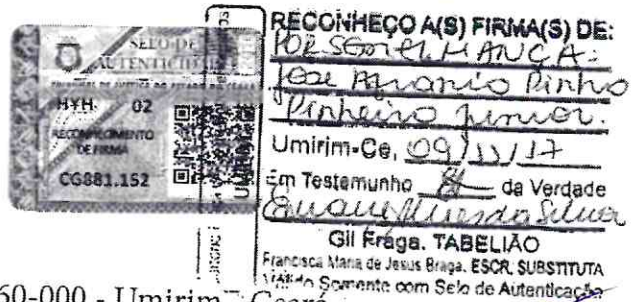 SELO DE
AUTENTICID
TRIBUNAL DE JUSTIÇA DO ESTADO DO CEARÁ
HYH 02
RECONHECIMENTO
DE FIRMA
CG881.152
RECONHEÇO A(S) FIRMA(S) DE:
POR SEMELHANÇA:
José Pinho
Pinheiro Junior.
Umirim-Ce, 09/11/17
Em Testemunho da Verdade
Gil Fraga. TABELIÃO
Francisca Maria de Jesus Braga. ESCR. SUBSTITUTA
Válido Somente com Selo de Autenticação
60-000 - Umirim - Ceará